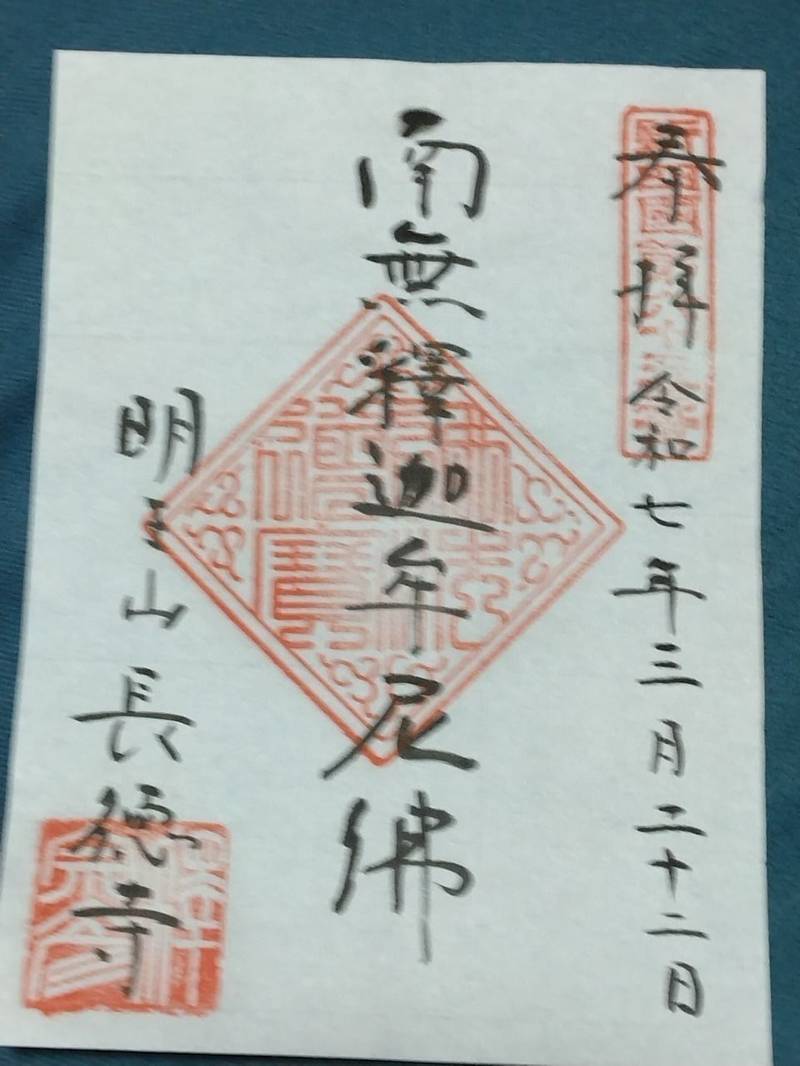 奉拝 令和七年三月二十二日
南無釋迦牟尼佛
明王山長徳寺
佛法僧寳